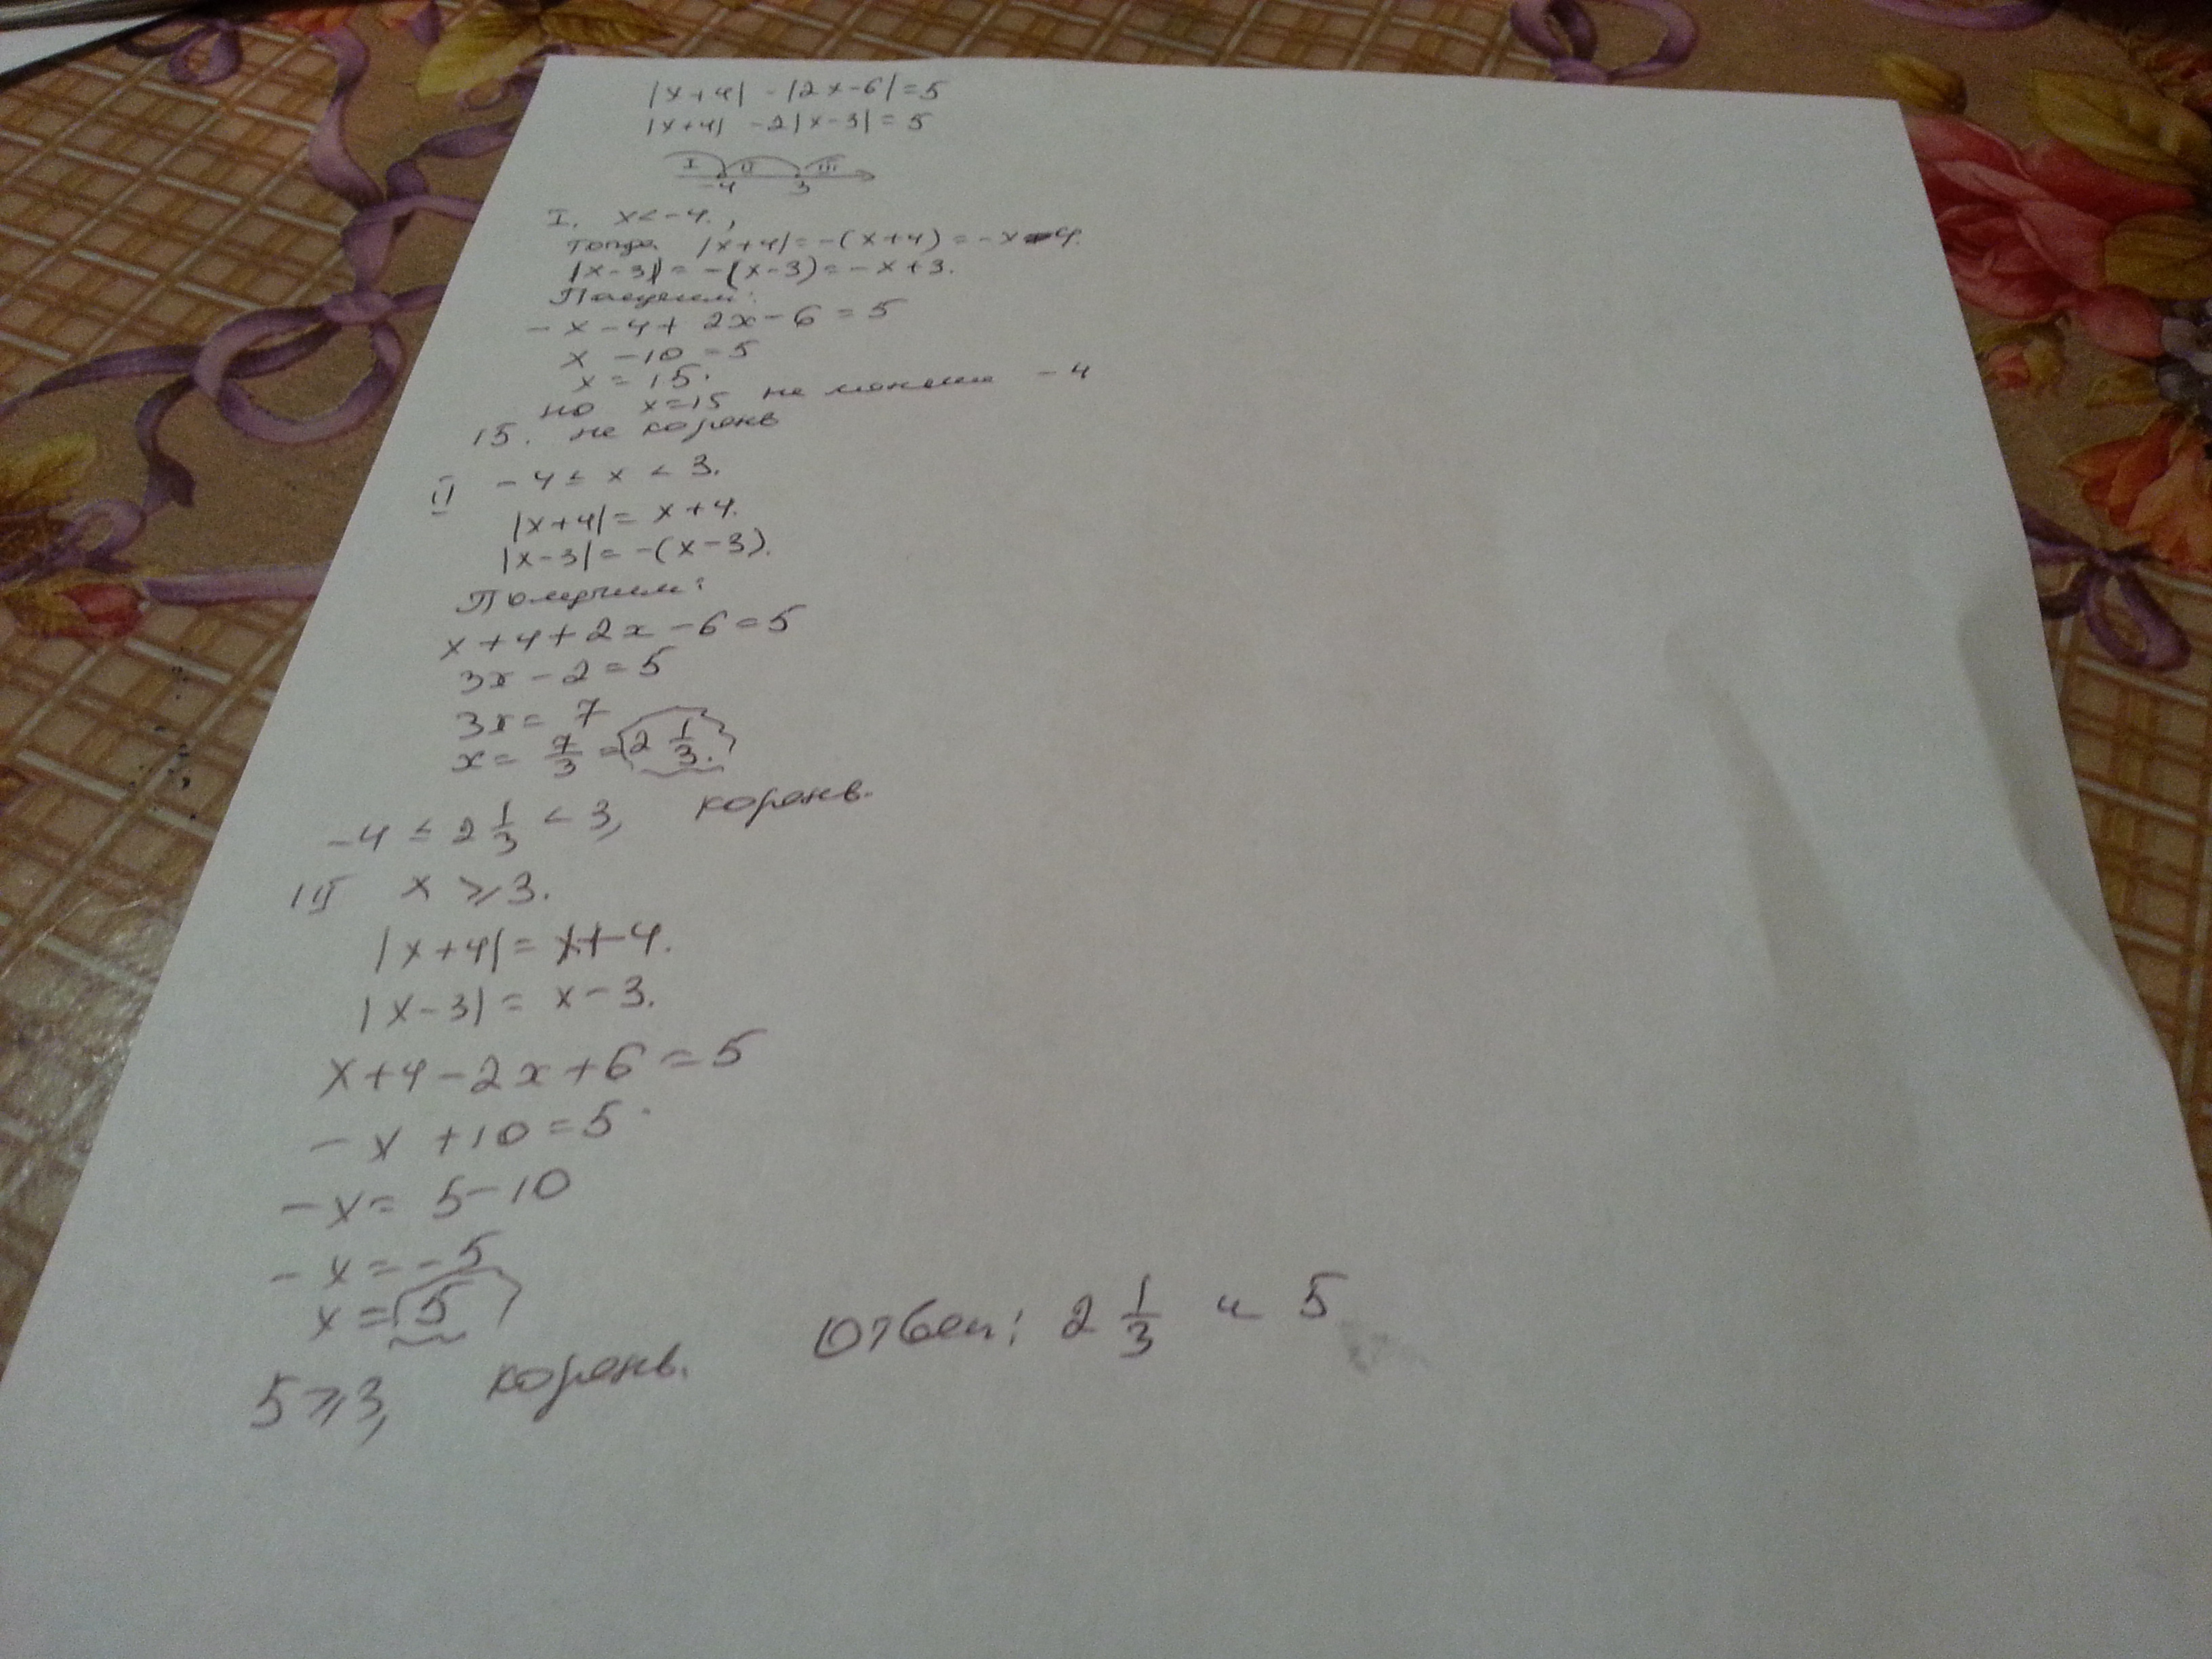 |x+4| -|2x-6|=5
|x+4| -2|x-3|=5
I II III
-4 3
I. x<-4.,
тогда |x+4|=-(x+4)=-x-4.
|x-3|=-(x-3)=-x+3.
Получим:
-x-4+2x-6=5
x-10=5
x=15.
но x=15 не меньше -4
15. не корень
II -4≤x<3.
|x+4|=x+4.
|x-3|=-(x-3).
Получим:
x+4+2x-6=5
3x-2=5
3x=7
x=7/3=2 1/3.
-4≤2 1/3<3, корень.
III x≥3.
|x+4|=x+4.
|x-3|=x-3.
x+4-2x+6=5
-x+10=5
-x=5-10
-x=-5
x=5
5≥3, корень.
Ответ: 2 1/3 и 5